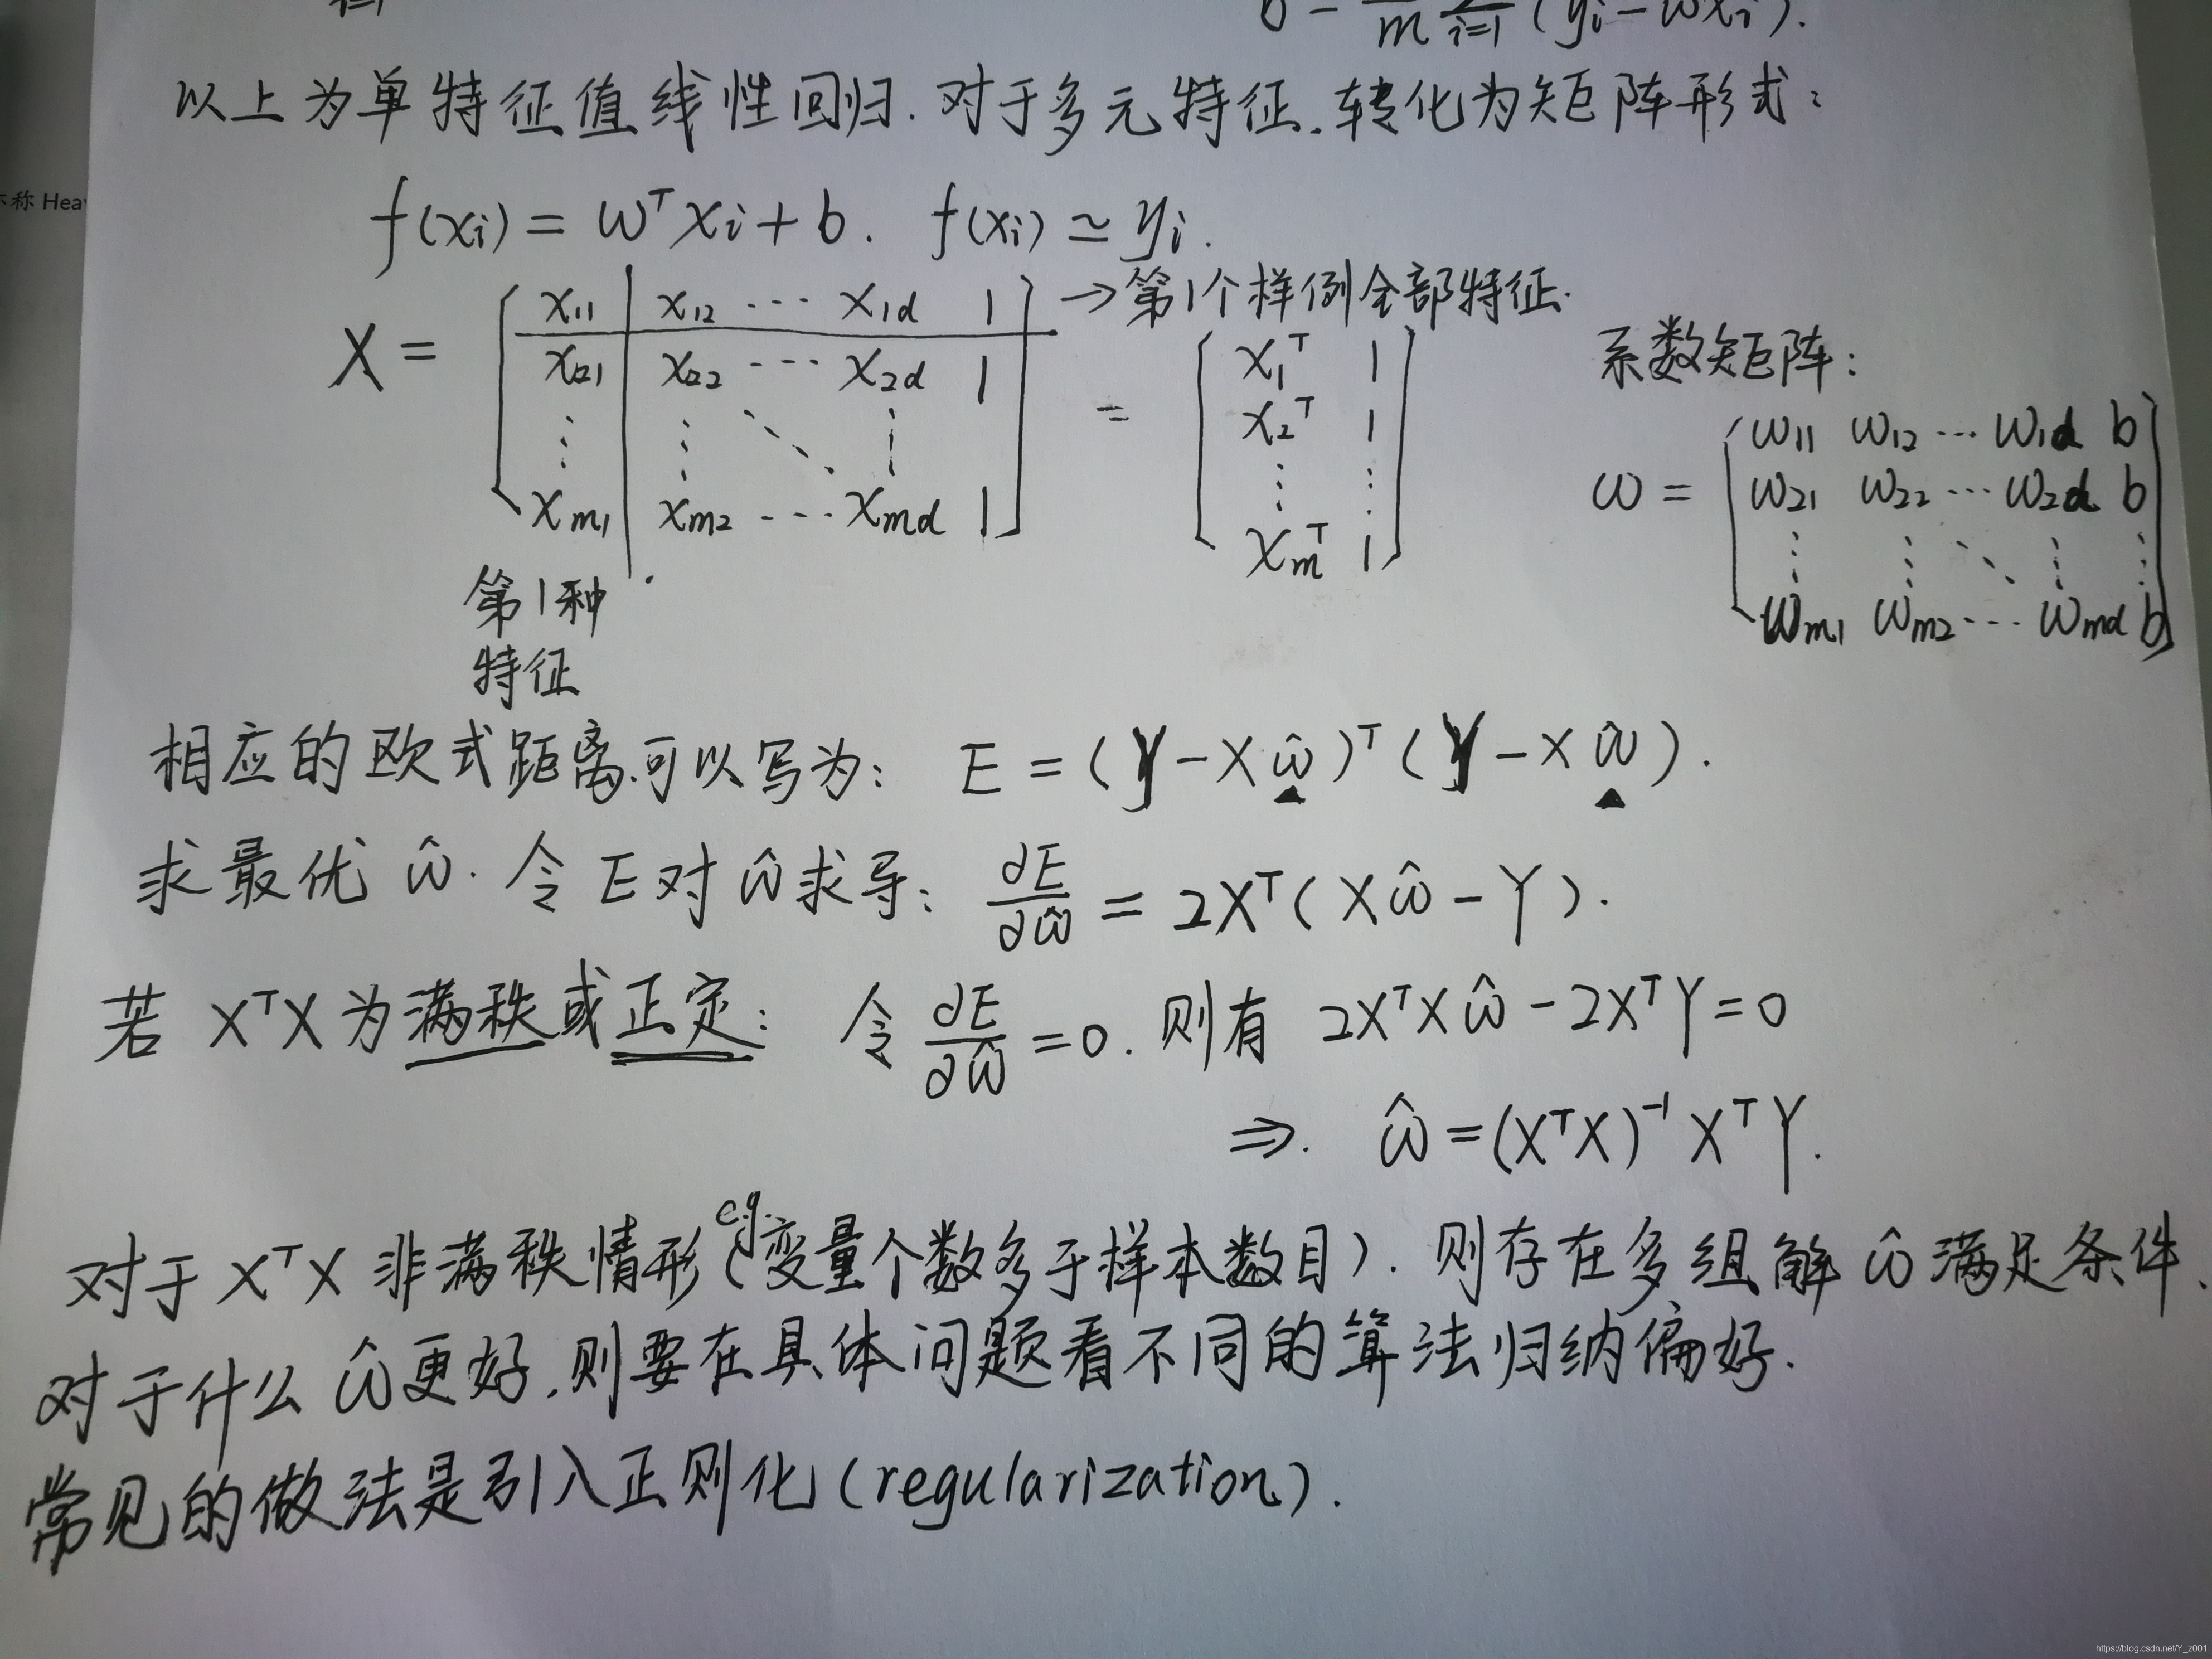 b = 1/m Σ i=1 (yi - ωxi).
以上为单特征值线性回归.对于多元特征.转化为矩阵形式:
亦称 Hea
f(xi) = ω^T xi + b. f(xi) ≃ yi.
X = [ x11 x12 ··· x1d 1 ] →第1个样例全部特征.
[ x21 x22 ··· x2d 1 ]
[ ⋮ ⋮ ⋱ ⋮ ]
[ xm1 xm2 ··· xmd 1 ]
= [ x1^T 1 ]
[ x2^T 1 ]
[ ⋮ ⋮ ]
[ xm^T 1 ]
系数矩阵:
ω = [ ω11 ω12 ··· ω1d b ]
[ ω21 ω22 ··· ω2d b ]
[ ⋮ ⋮ ⋱ ⋮ ⋮ ]
[ ωm1 ωm2 ··· ωmd b ]
第1种
特征
相应的欧式距离.可以写为: E = (Y - Xω̂)^T (Y - Xω̂).
求最优 ω̂. 令 E 对 ω̂ 求导: ∂E/∂ω̂ = 2X^T(Xω̂ - Y).
若 X^TX 为满秩或正定: 令 ∂E/∂ω̂ = 0. 则有 2X^TXω̂ - 2X^TY = 0
⇒. ω̂ = (X^TX)^-1 X^TY.
对于 X^TX 非满秩情形(e.g.变量个数多于样本数目). 则存在多组解 ω̂ 满足条件、
对于什么 ω̂ 更好.则要在具体问题看不同的算法归纳偏好.
常见的做法是引入正则化(regularization).
https://blog.csdn.net/Y_z001